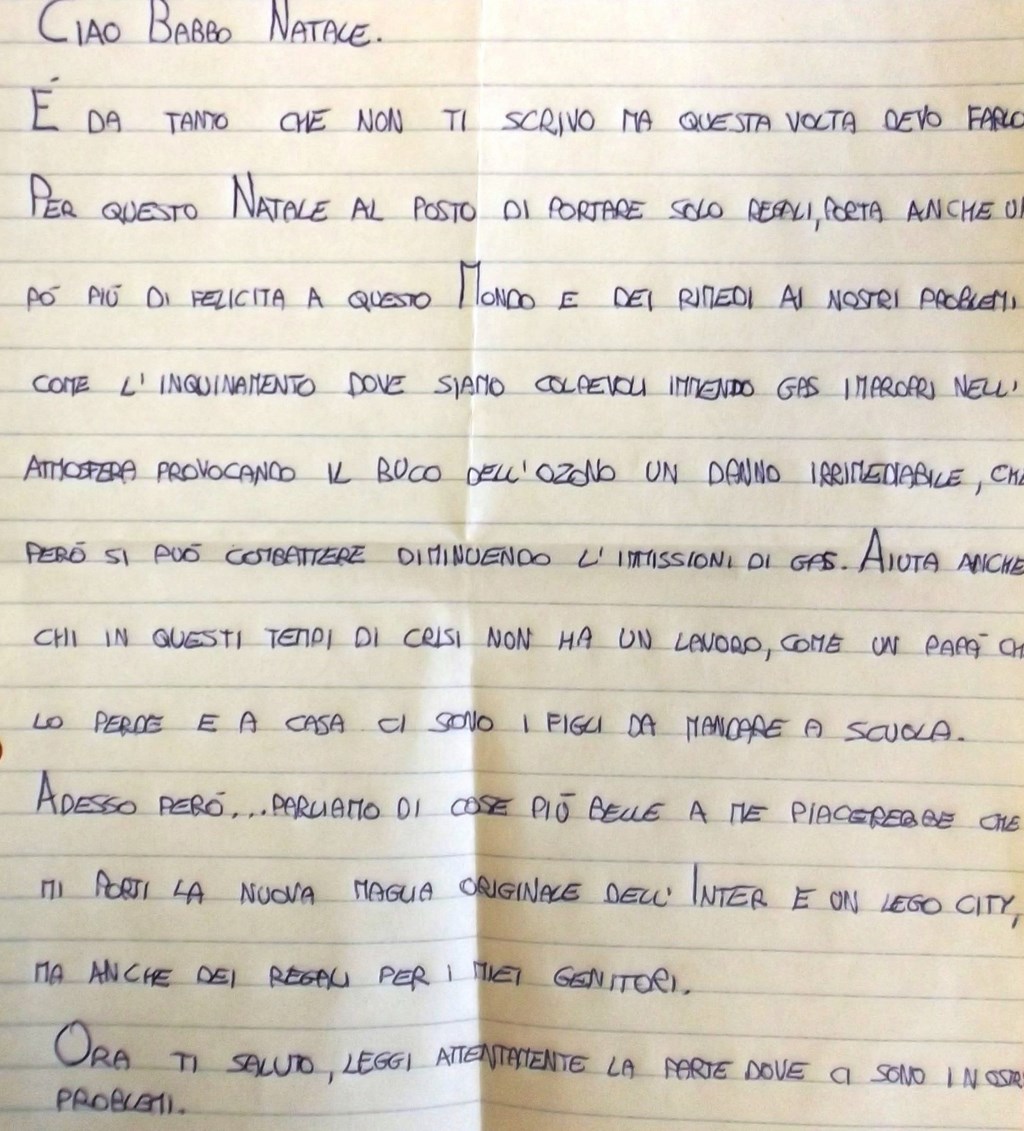 CIAO BABBO NATALE.
É DA TANTO CHE NON TI SCRIVO MA QUESTA VOLTA DEVO FARLO
PER QUESTO NATALE AL POSTO DI PORTARE SOLO REGALI, PORTA ANCHE UN
PÓ PIÚ DI FELICITA A QUESTO MONDO E DEI RIMEDI AI NOSTRI PROBLEMI
COME L'INQUINAMENTO DOVE SIAMO COLPEVOLI IMMENDO GAS IMPROPRI NELL'
ATMOSFERA PROVOCANDO IL BUCO DELL'OZONO UN DANNO IRRIMEDIABILE, CHE
PERÓ SI PUÓ COMBATTERE DIMINUENDO L'IMMISSIONI DI GAS. AIUTA ANCHE
CHI IN QUESTI TEMPI DI CRISI NON HA UN LAVORO, COME UN PAPÁ CH
LO PERDE E A CASA CI SONO I FIGLI DA MANDARE A SCUOLA.
ADESSO PERÓ...PARLIAMO DI COSE PIÚ BELLE A ME PIACEREBBE CHE
MI PORTI LA NUOVA MAGLIA ORIGINALE DELL'INTER E UN LEGO CITY,
MA ANCHE DEI REGALI PER I MIEI GENITORI.
ORA TI SALUTO, LEGGI ATTENTAMENTE LA PARTE DOVE CI SONO I NOSTR
PROBLEMI.